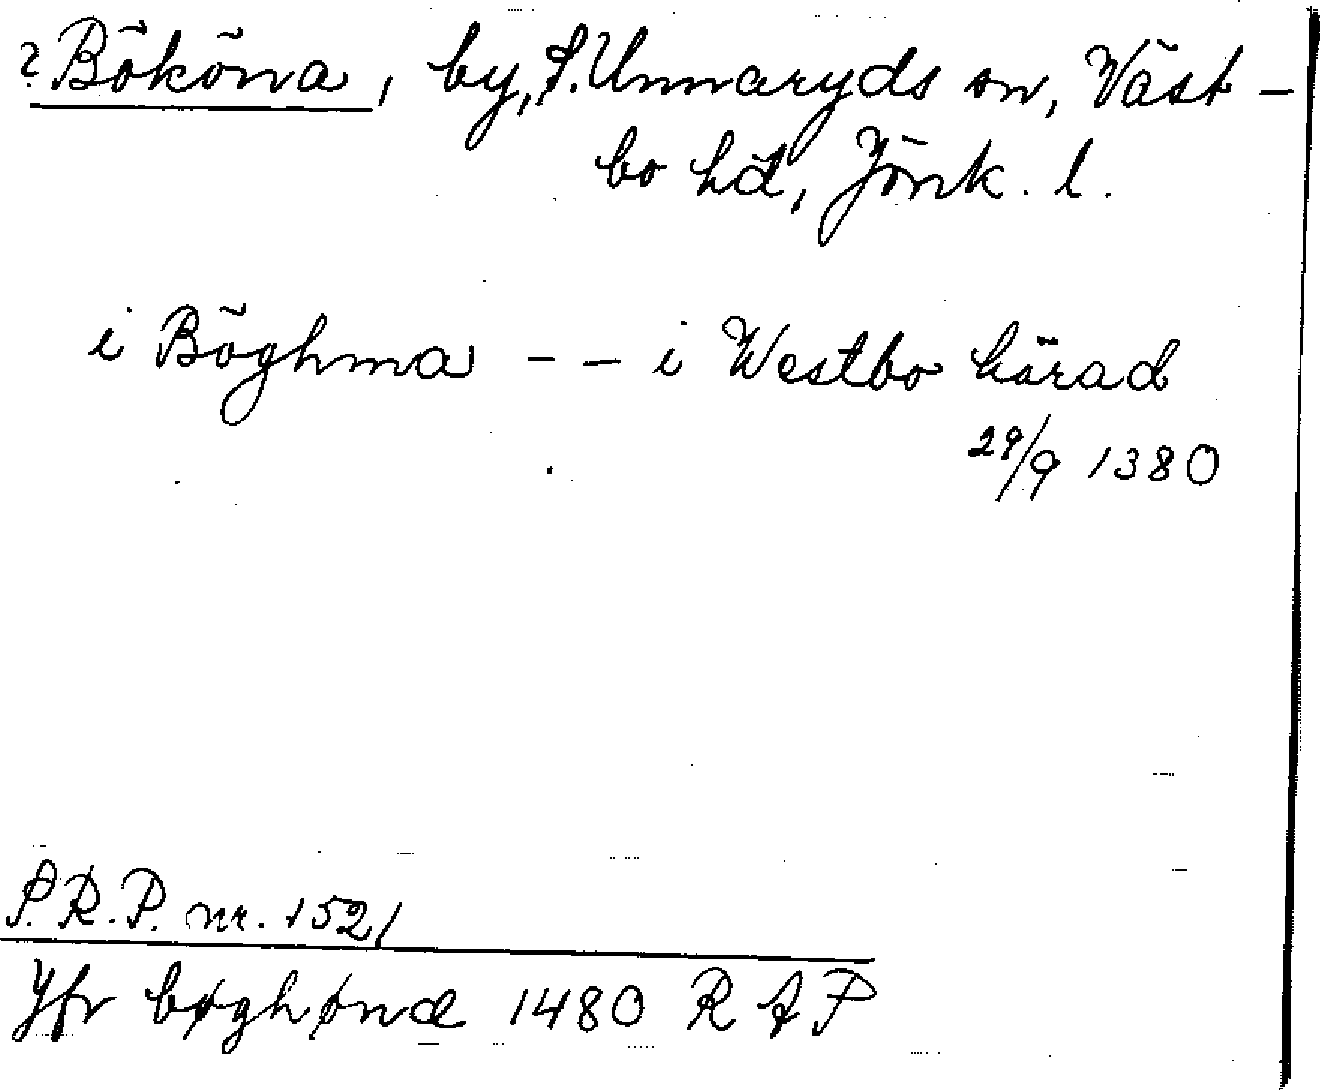 ? Bököna, by, S. Unnaryds sn, Väst-
bo hd, Jönk. l.
i Böghma - - i Westbo härad
29/9 1380
S.R.P. nr. 1521
Jfr bøghønæ 1480 RAP